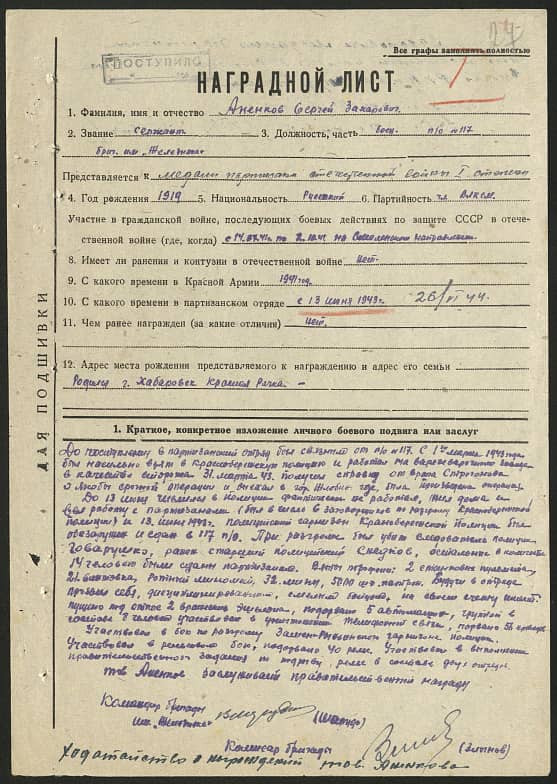 27
Все графы заполнить полностью
ПОСТУПИЛО
НАГРАДНОЙ ЛИСТ
1. Фамилия, имя и отчество Аненков Сергей Захарович
2. Звание сержант 3. Должность, часть боец п/о № 117
бриг. им "Железняка"
Представляется к медали партизана отечественной войны I степени
4. Год рождения 1919 5. Национальность Русский 6. Партийность чл. ВЛКСМ.
Участие в гражданской войне, последующих боевых действиях по защите СССР в отече-
ственной войне (где, когда) с 14.07.41 по 2.10.41 на Смоленском направлении.
8. Имеет ли ранения и контузии в отечественной войне нет.
9. С какого времени в Красной Армии 1941 год.
10. С какого времени в партизанском отряде с 13 июня 1943 г. 26/VI 44.
11. Чем ранее награжден (за какие отличия) нет.
12. Адрес места рождения представляемого к награждению и адрес его семьи
Родился г. Хабаровск Красная Речка —
ДЛЯ ПОДШИВКИ
1. Краткое, конкретное изложение личного боевого подвига или заслуг
До поступления в партизанский отряд был связным от п/о № 117. С 1го марта 1943 года
был насильно взят в Краснобережскую полицию и работал на
в качестве сторожа 31 марта 43. Получил справку от врача
о якобы срочной операции и выехал в гор. Жлобин где была произведена операция.
До 13 июня числился в полиции фактически не работал, жил дома и
вел работу с партизанами (был в числе заговорщиков по разгрому Краснобережской
полиции) и 13 июня 1943 г. полицейский гарнизон Краснобережской полиции был
обезоружен и сдан в 117 п/о. При разгроме был убит следователь полиции
ранен старший полицейский остальные в количестве
14 человек были сданы партизанам. Взяты трофеи: 2 станковых пулемета,
21 винтовка, ротный миномет, 32 мины, 5000 шт. патрон. Будучи в отряде
проявил себя, дисциплинированным, смелым бойцом, на своем счету имеет:
пущено под откос 2 вражеских эшелона, подорвано 5 автомашин, группой в
составе 8 человек участвовал в уничтожении телефонной связи,
Участвовал в бою по разгрому гарнизона полиции.
Участвовал в рельсовом бою, подорвано 40 рельс. Участвовал в выполнении
правительственного задания по подрыву рельс в составе двух отрядов.
тов Аненков заслуживает правительственной награды
Командир бригады
им. "Железняка"
Комиссар бригады
Ходатайство о награждении тов. Аненкова